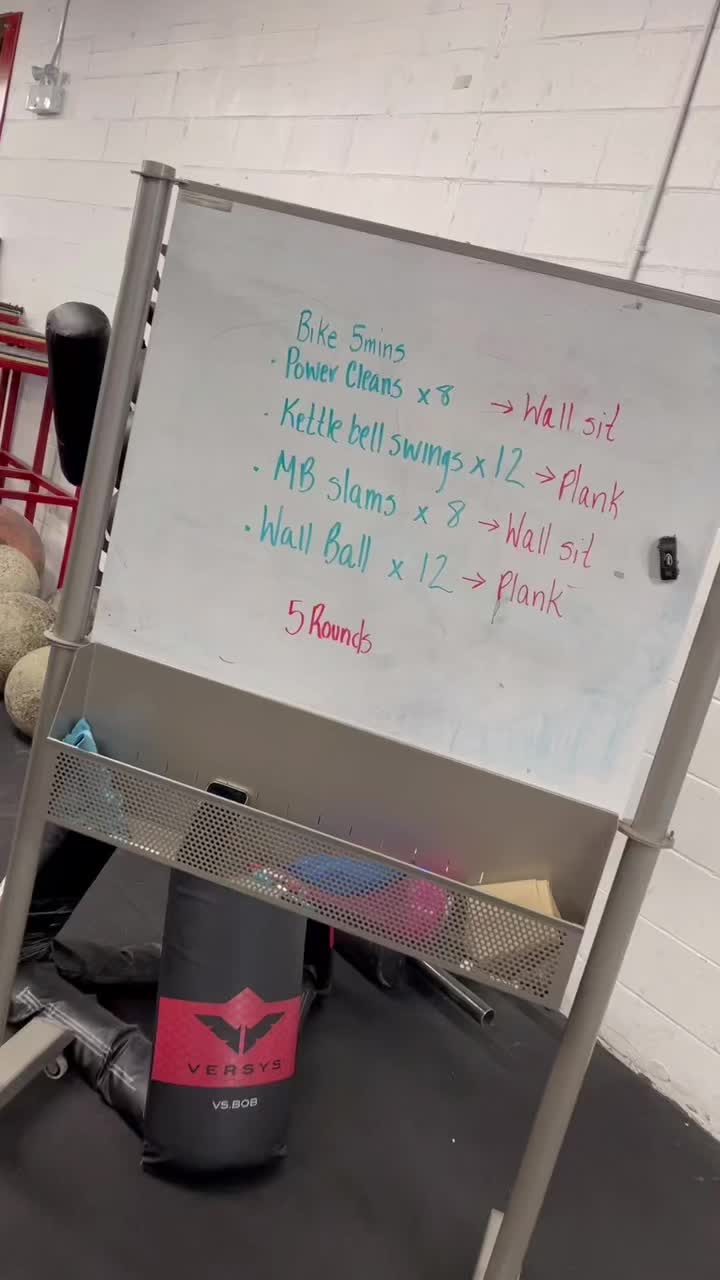 Bike 5mins
• Power Cleans x 8 → Wall sit
• Kettle bell swings x 12 → Plank
• MB slams x 8 → Wall sit
• Wall Ball x 12 → Plank
5 Rounds
VERSYS
VS.BOB